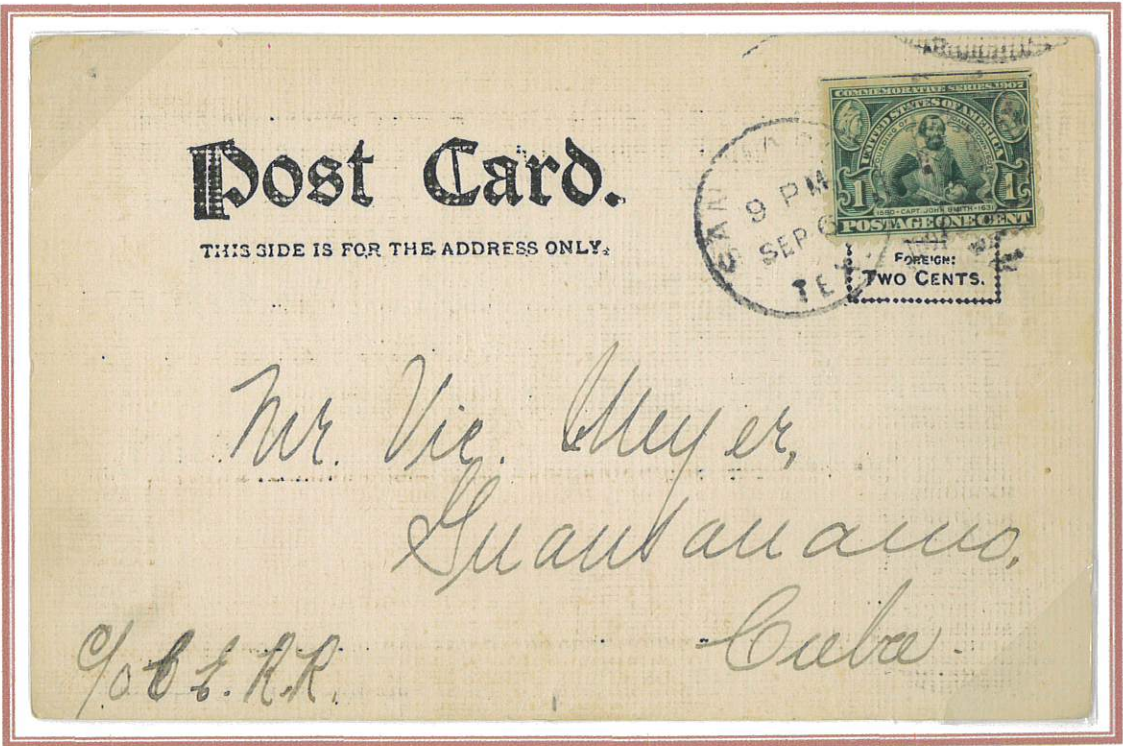 Post Card.
THIS SIDE IS FOR THE ADDRESS ONLY.
COMMEMORATIVE SERIES 1907
UNITED STATES OF AMERICA
1 1
1580 · CAPT. JOHN SMITH · 1631
POSTAGE ONE CENT
9 PM
SEP 6
TEX.
FOREIGN:
TWO CENTS.
Mr. Vic. Meyer,
Guantanamo,
Cuba.
c/o C E. R.R.